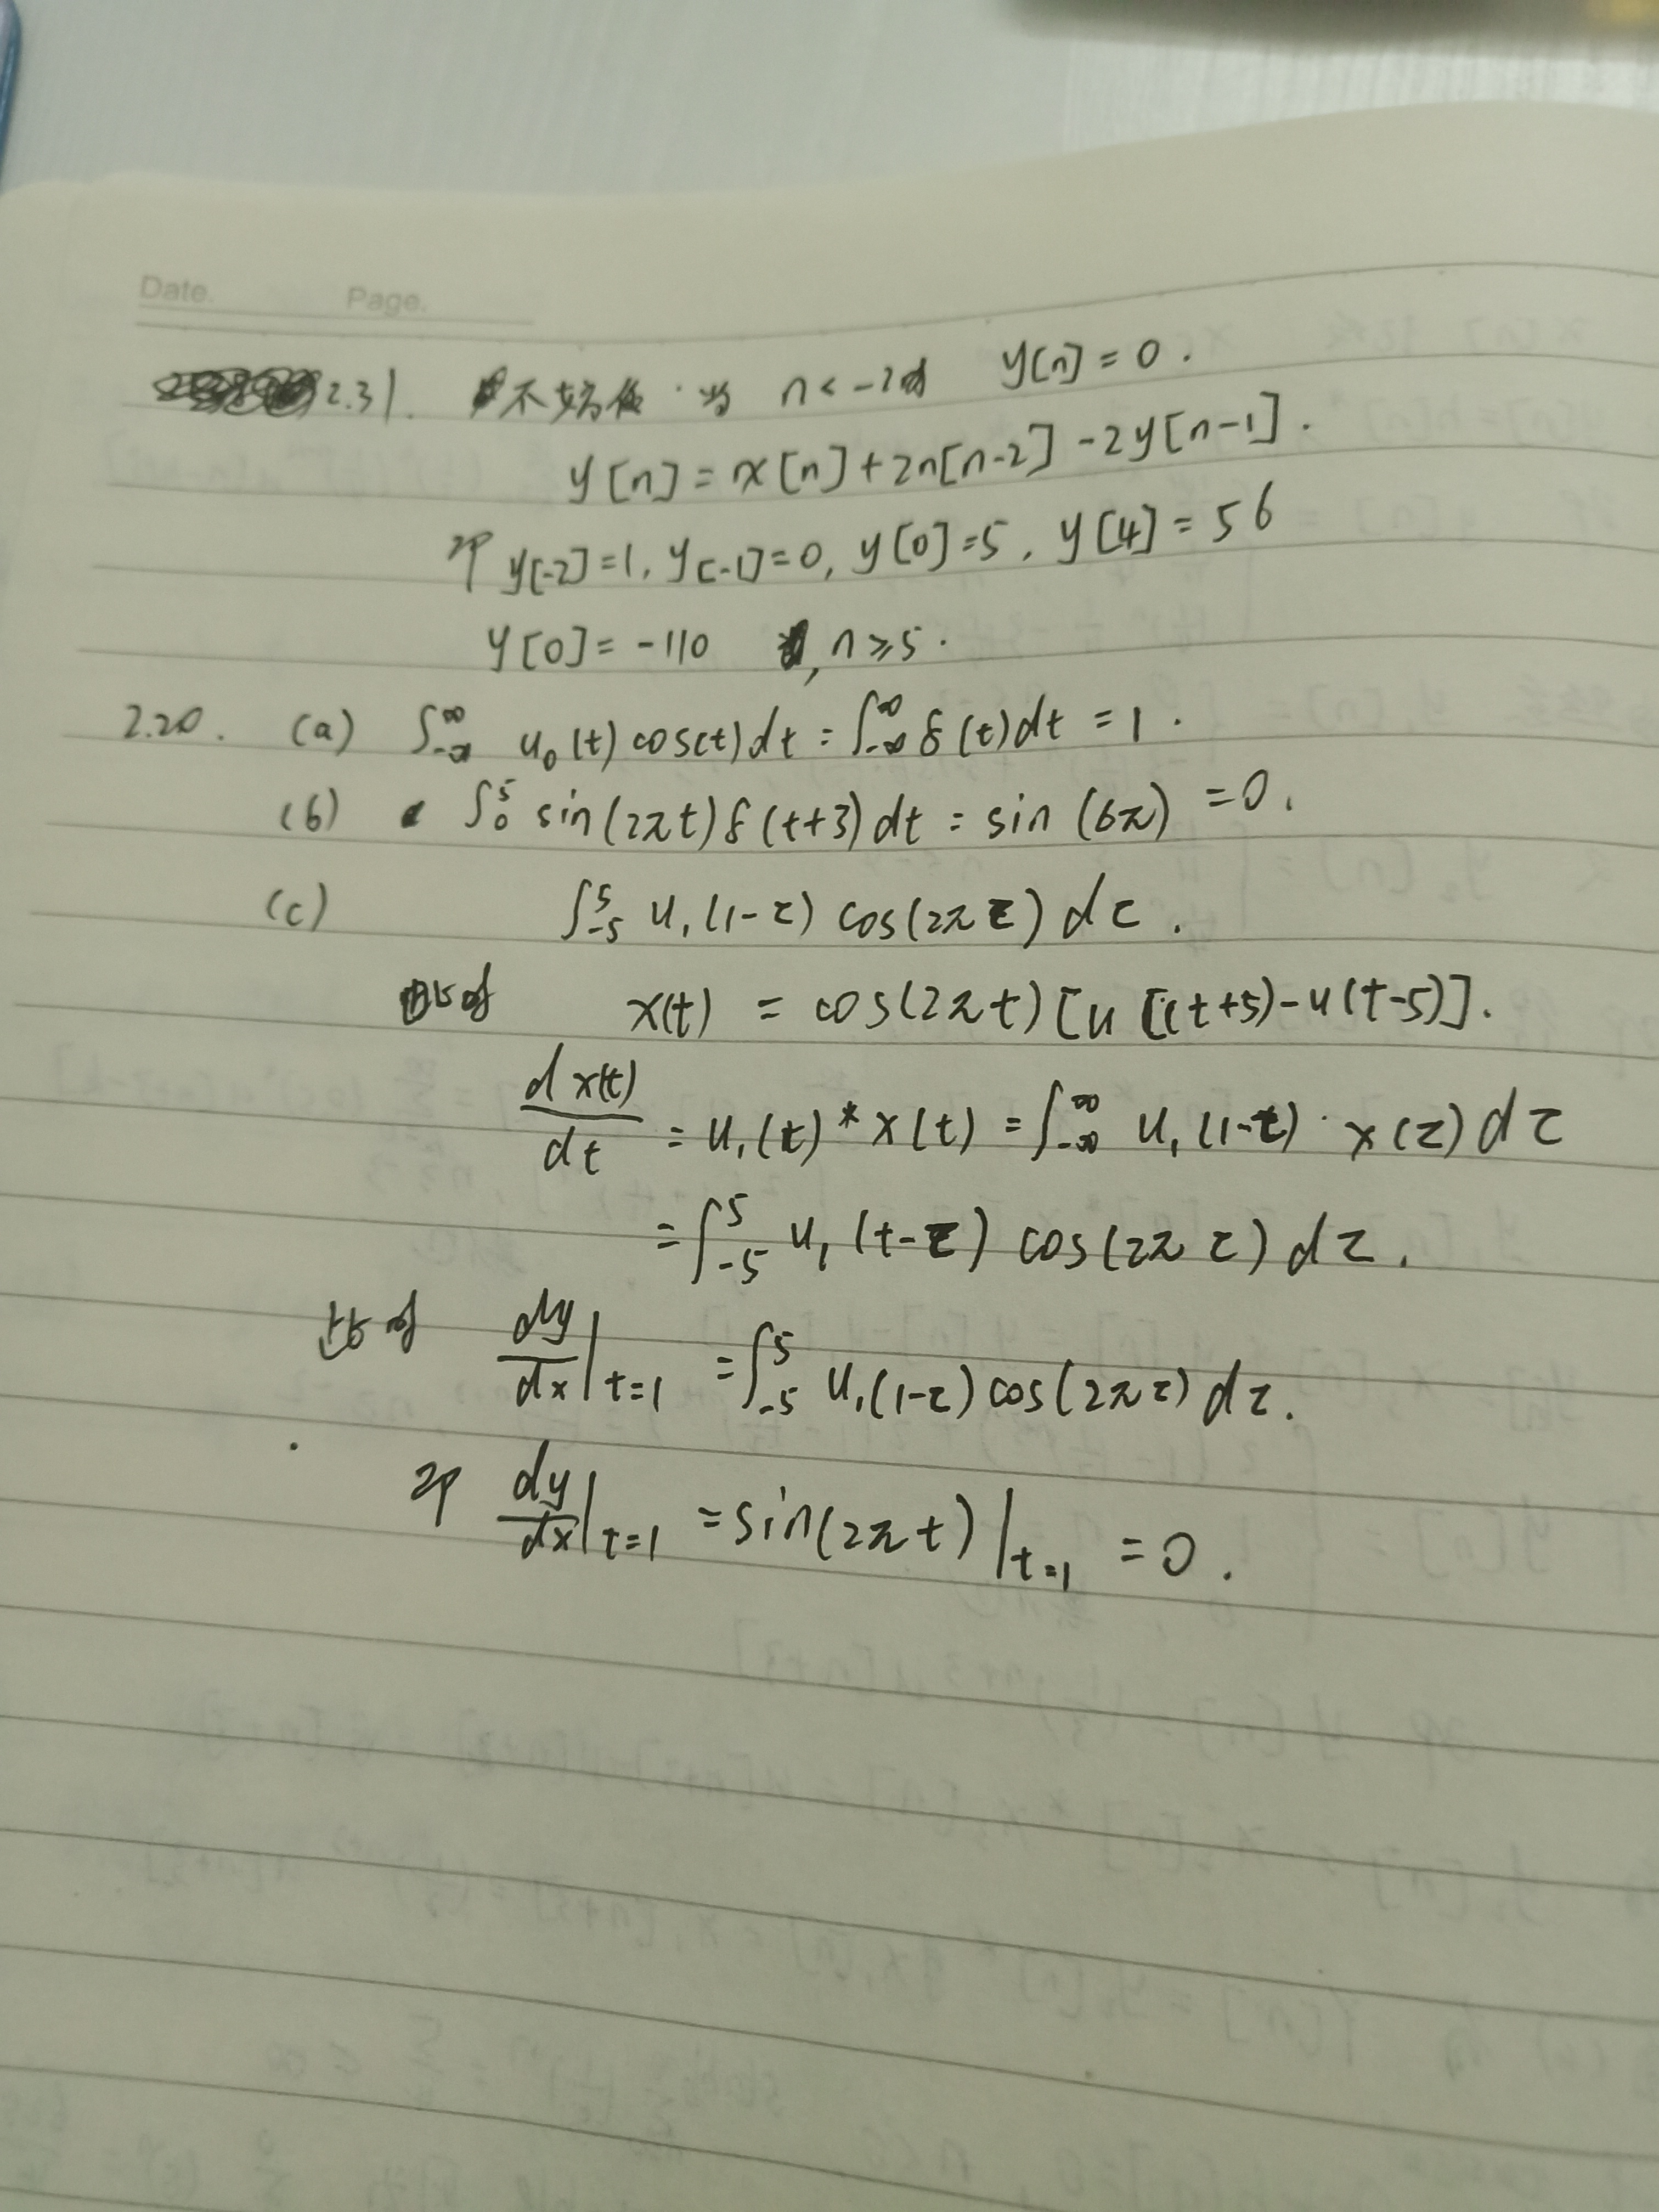 Date. Page.
2.31. 不始 当 n<-2时 y[n]=0.
y[n]=x[n]+2n[n-2]-2y[n-1].
即 y[-2]=1, y[-1]=0, y[0]=5, y[4]=56
y[0]=-110 , n≥5.
2.20. (a) ∫_{-∞}^{∞} u₀(t)cos(t)dt=∫_{-∞}^{∞}δ(t)dt=1.
(b) ∫₀⁵ sin(2πt)δ(t+3)dt=sin(6π)=0.
(c) ∫_{-5}^{5} u₁(1-τ)cos(2πτ)dτ.
此时 x(t)=cos(2πt)[u[(t+5)-u(t-5)].
dx(t)/dt=u₁(t)*x(t)=∫_{-∞}^{∞} u₁(1-τ)·x(τ)dτ
=∫_{-5}^{5} u₁(t-τ)cos(2πτ)dτ.
此时 dy/dx|_{t=1}=∫_{-5}^{5} u₁(1-τ)cos(2πτ)dτ.
即 dy/dx|_{t=1}=sin(2πt)|_{t=1}=0.